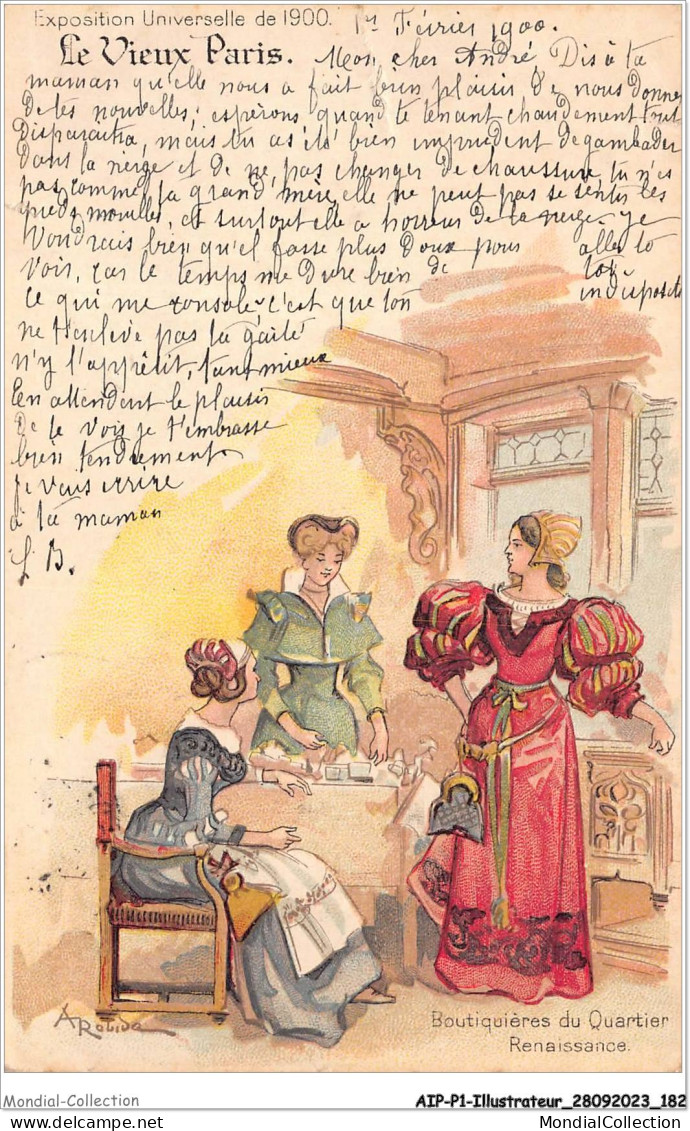 Exposition Universelle de 1900.
1er Février 1900.
Le Vieux Paris.
Mon cher André Dis à ta
maman qu'elle nous a fait bien plaisir de nous donner
de tes nouvelles, espérons quand te tenant chaudement tout
disparaitra, mais tu as été bien imprudent de gambader
dans la neige et de ne pas changer de chaussure, tu n'es
pas comme ta grand mère, elle ne peut pas se sentir les
pieds mouillés, et surtout elle a horreur de la neige. je
voudrais bien qu'il fasse plus doux pour aller te
voir, car le temps me dure bien de toi
ce qui me console, c'est que ton indisposit
ne t'enlève pas la gaité
n'y l'appétit, tant mieux
En attendant le plaisir
de te voir je t'embrasse
bien tendrement
je vais écrire
à ta maman
B.
A Robida
Boutiquières du Quartier
Renaissance.
Mondial-Collection
AIP-P1-Illustrateur_28092023_182
MondialCollection.com